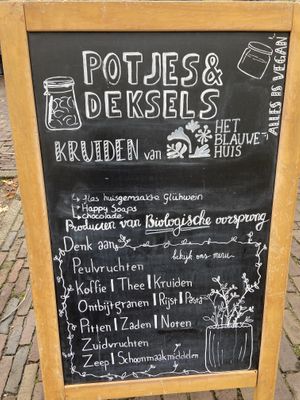 POTJES &
DEKSELS
ALLES IS VEGAN
KRUIDEN van
HET
BLAUWE
HUIS
huisgemaakte Glühwein
Happy Soaps
chocolade
Producten van Biologische oorsprong
Denk aan
bekijk ons menu
Peulvruchten
Koffie | Thee | Kruiden
Ontbijtgranen | Rijst | Pasta
Pitten | Zaden | Noten
Zuidvruchten
Zeep | Schoonmaakmiddelen